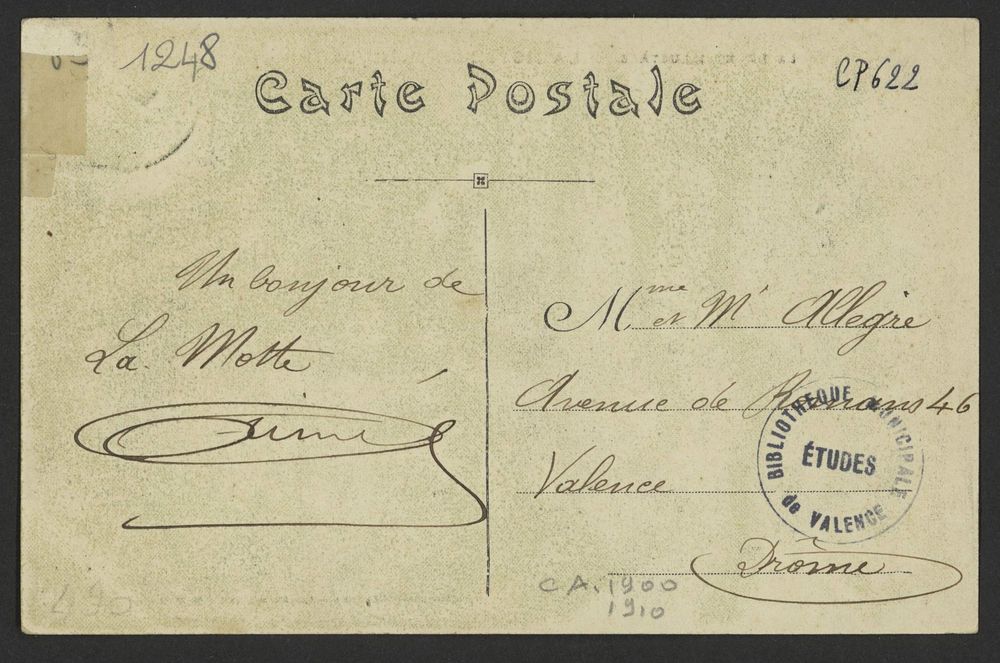 1248
CP622
Carte Postale
Un bonjour de
La Motte
Aimé
Mme et Mr Allegre
Avenue de Romans 46
Valence
Drôme
BIBLIOTHEQUE MUNICIPALE
ÉTUDES
de VALENCE
CA. 1900
1910